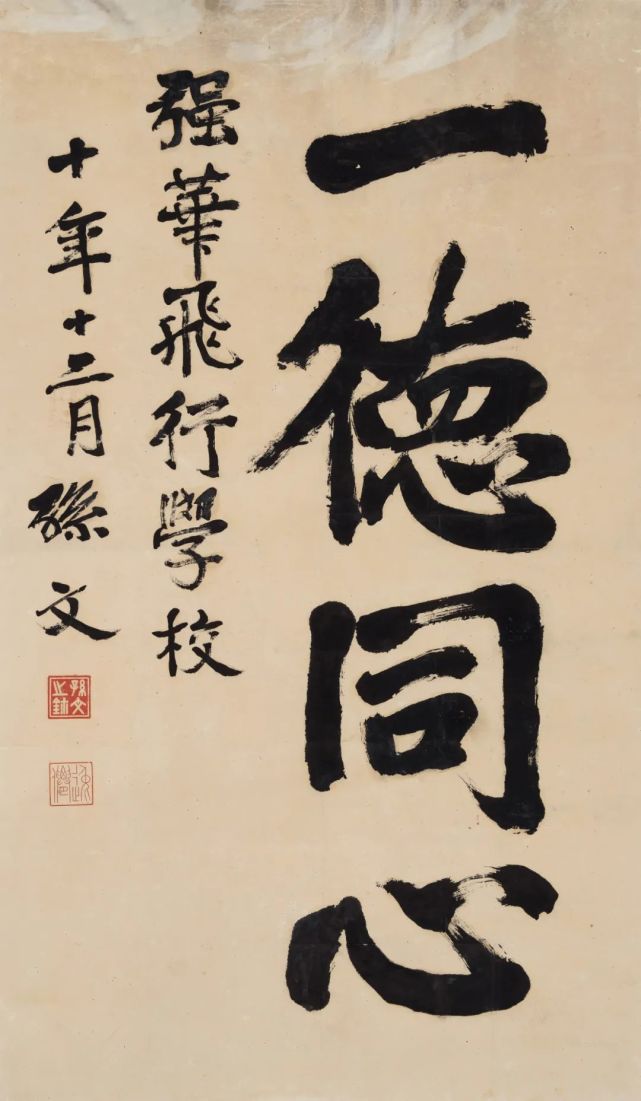 一德同心
强華飛行學校
十年十二月孫文
孫文之鈢